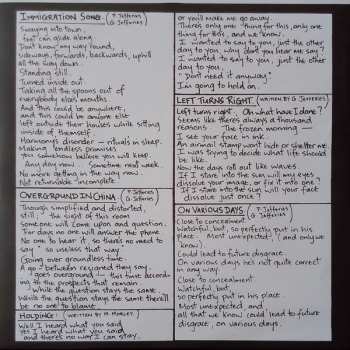 IMMIGRATION SONG (P. Jefferies
G. Jefferies)
Swaying into town,
feet can glide along
Don't know my way round,
sideways, forwards, backwards, uphill
all the way down
Standing still
Turned inside out.
Taking all the spoons out of
everybody else's mouths
And this could be anywhere,
and this could be anyone else
left outside their houses while sitting
inside of themself
Harmony's disorder - rituals in sleep.
Making endless promises
you somehow believe you will keep.
Any day now Sometime next week
No more getting in the way now
Not returnable incomplete
OVERGROUND IN CHINA (P. Jefferies
G. Jefferies)
Though simplified and distorted,
still, the sight of this room
Someone will come upon and question.
For days no one will answer the phone
No one to hear it so there's no need to
say "so useless that way"
Going over groundless time.
A go-between resigned they say,
goes overground - this time according
to the prospects that remain
While the question stays the same.
While the question stays the same there'll
be no one to blame
HOLDING! (WRITTEN BY M. MORLEY)
Well I heard what you said
I heard what you said
and there's no way I can stay.
or you'll make me go away.
There's only one thing for this, only one
thing for this, and we know.
I wanted to say to you, just the other
day to you, why don't you hear me say?
I wanted to say to you, just the other
day to you,
"Don't need it anyway"
I'm going to hold on.
LEFT TURNS RIGHT (WRITTEN BY G. JEFFERIES)
Left turns right. Oh what have I done?
Seems like there's always a thousand
reasons The frozen morning -
I see your face in ink.
An animal stamp won't hide or shelter me.
I was trying to decide what life should
be like.
Now the days cut out like waves
If I stare into the sun will my eyes
dissolve your image, or fix it into one?
If I stare into the sun will your face
dissolve just once?
ON VARIOUS DAYS (P. Jefferies
G. Jefferies)
Close to concealment
Watchful, but, so perfectly put in his
place. Most unexpected, (and only we
know).
Could lead to future disgrace
On various days he's not quite correct
in any way.
Close to concealment
Watchful, but,
so perfectly put in his place
Most unexpected and
all that we know could lead to future
disgrace, on various days.